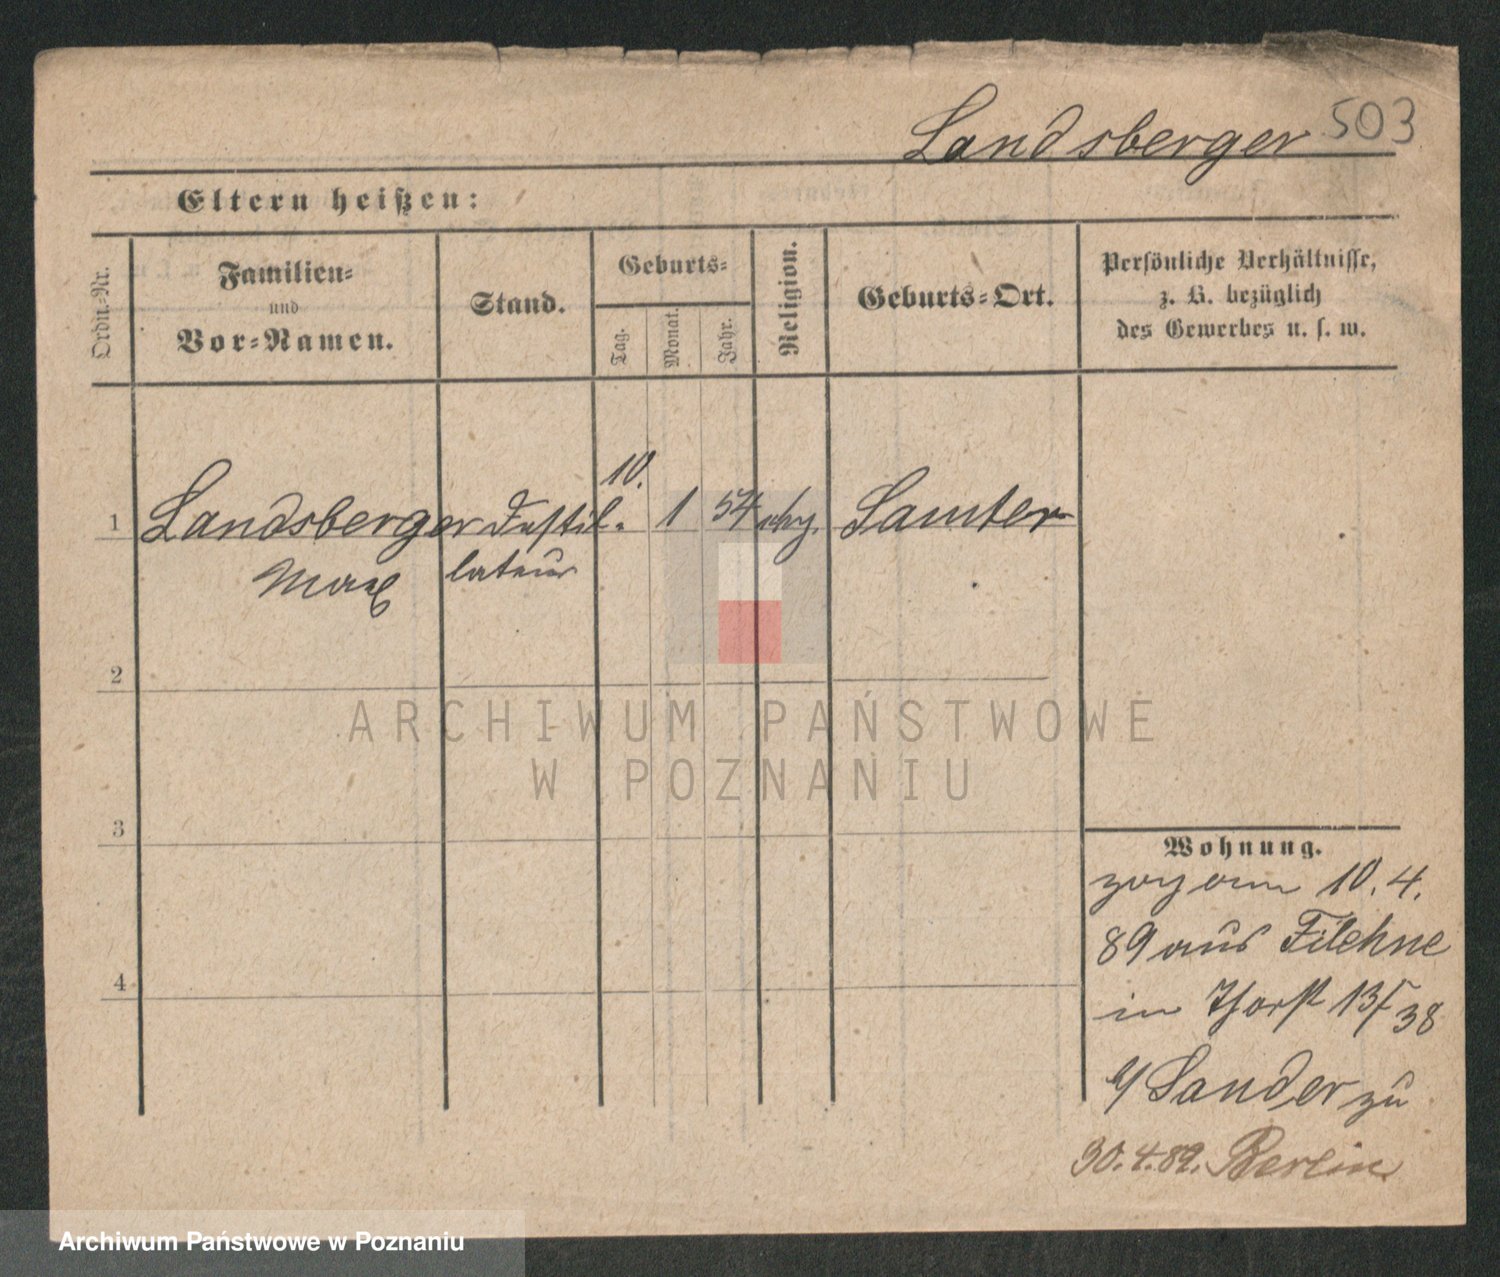 Landsberger 503
Eltern heißen:
Ordn.-Nr.
Familien-
und
Vor-Namen.
Stand.
Geburts-
Tag.
Monat.
Jahr.
Religion.
Geburts-Ort.
Persönliche Verhältnisse,
z. B. bezüglich
des Gewerbes u. s. w.
10.
1 Landsberger Destil- 1 54 Samter
Max lateur
2
3
4
Wohnung.
zog am 10. 4.
89 aus Filehne
in 13/38
b/ Sander zu
30.4.89. Berlin
ARCHIWUM PAŃSTWOWE
W POZNANIU
Archiwum Państwowe w Poznaniu